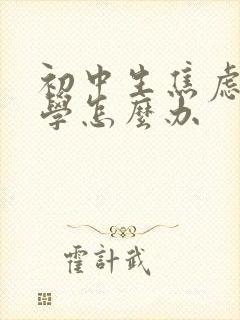 初中生焦虑
學怎麼办
霍計武